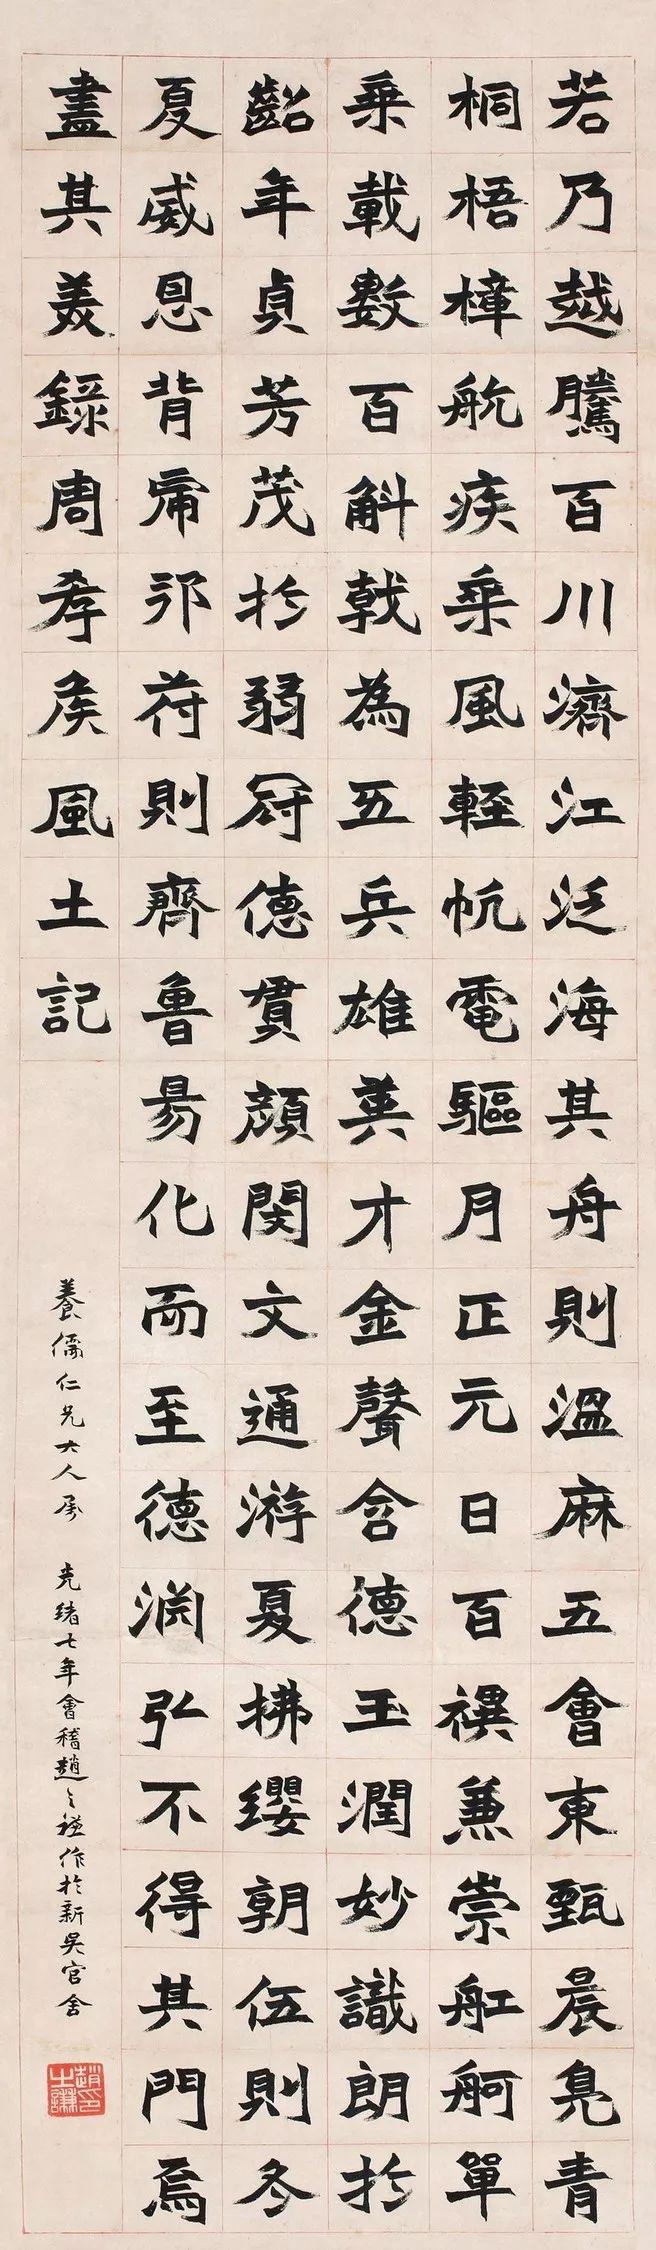 若乃越騰百川濟江泛海其舟則溫麻五會東甄晨鳧青
桐梧樟航疾乘風輕帆電驅月正元日百禩兼崇舡舸單
乘載數百斛戟為五兵雄英才金聲含德玉潤妙識朗於
齠年貞芳茂於弱冠德貫顏閔文通游夏拂纓朝伍則冬
夏威恩背帝邦符則齊魯易化而至德淵弘不得其門焉
盡其美錄周孝侯風土記
養儒仁兄大人屬 光緒七年會稽趙之謙作於新吳官舍
趙之謙印